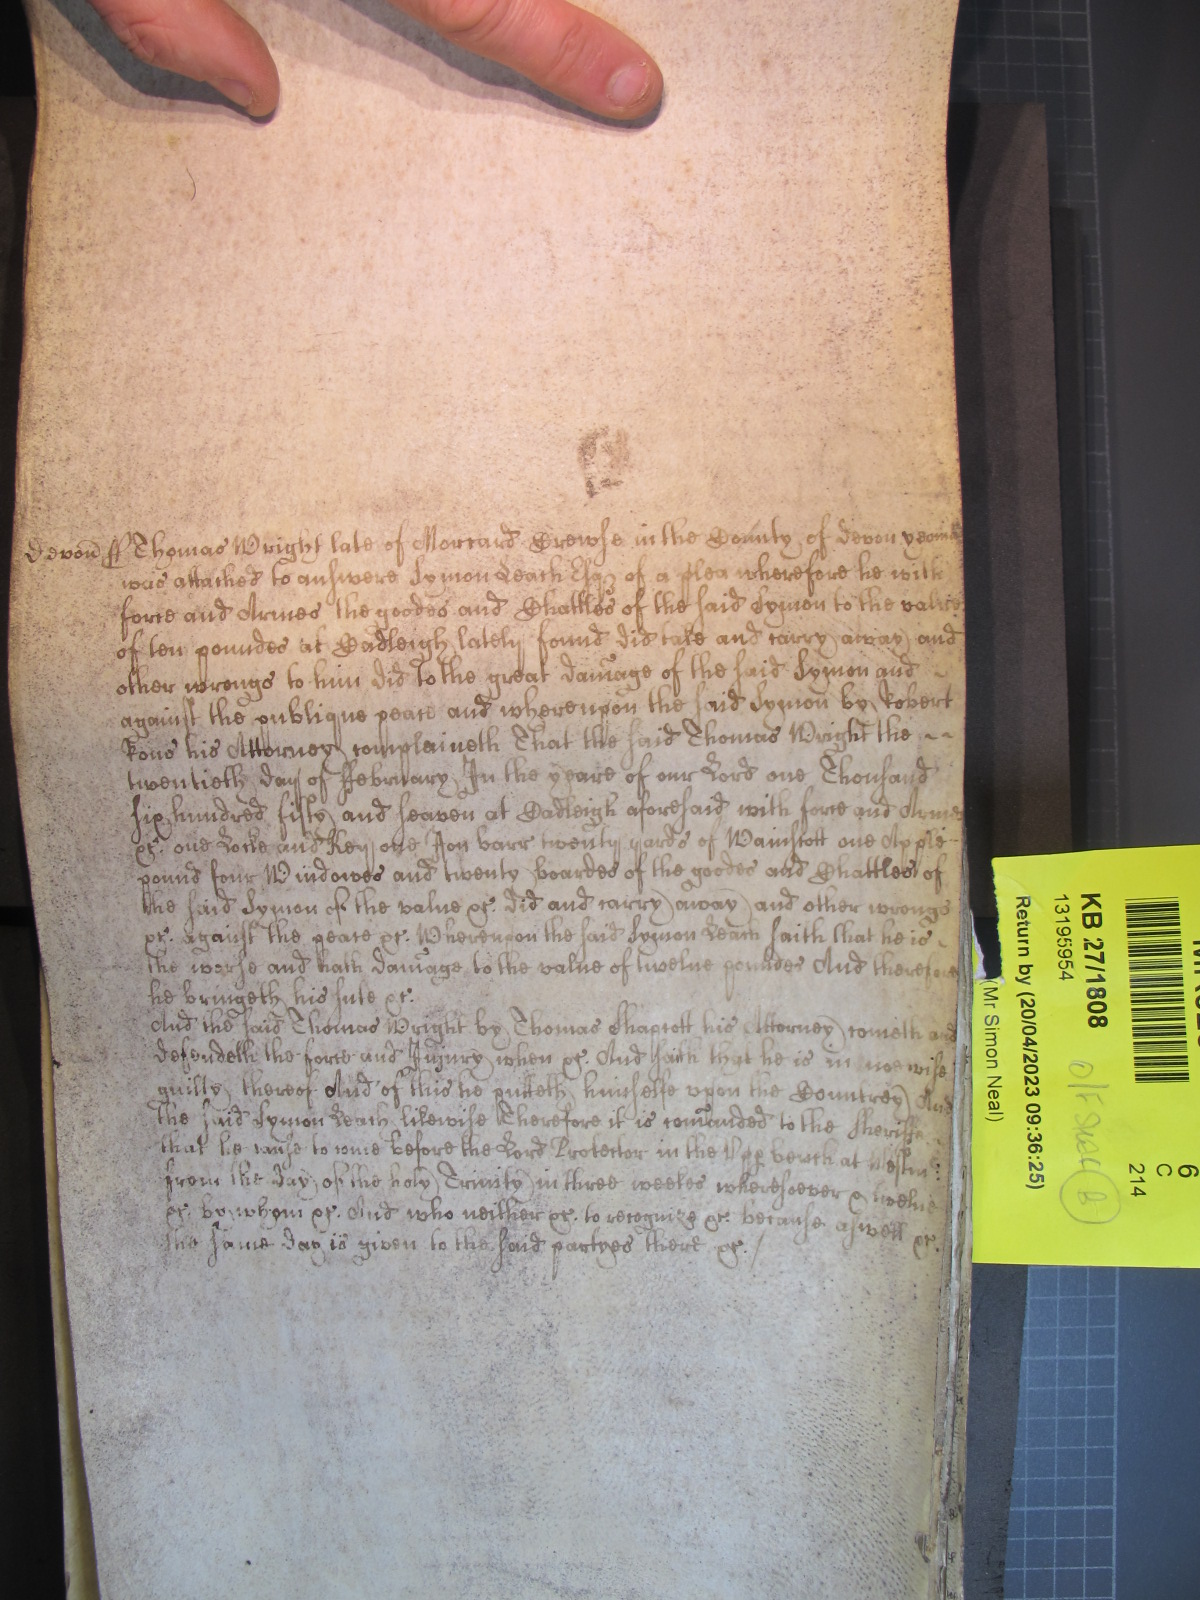 Devon ss Thomas Wright late of Morcard Crewse in the County of Devon yeoman
was attached to answere Symon Leach Esq of a plea wherefore he with
force and Armes the goodes and Chattles of the said Symon to the value
of ten poundes at Cadleigh lately found did take and carry away and
other wrongs to him did to the great damage of the said Symon and
against the publique peace and whereupon the said Symon by Robert
his Attorney complaineth That the said Thomas Wright the
twentieth day of ffebruary In the yeare of our Lord one Thousand
six hundred fifty and seaven at Cadleigh aforesaid with force and Armes
&c. one Locke and Key one Iron barr twenty yards of Wainscott one Apple
pound four Windowes and twenty boardes of the goodes and Chattles of
the said Symon of the value &c. did and carry away and other wrongs
&c. against the peace &c. Whereupon the said Symon Leach saith that he is
the worse and hath damage to the value of twelve poundes And therefore
he bringeth his sute &c.
And the said Thomas Wright by Thomas Shapcott his Attorney cometh and
defendeth the force and Injury when &c. And saith that he is in noe wise
guilty thereof And of this he putteth himselfe upon the Countrey And
the said Symon Leach likewise Therefore it is comanded to the Sheriffe
that he cause to come before the Lord Protector in the Upp bench at Westm:
from the day of the holy Trinity in three weekes wheresoever &c twelve
&c. by whom &c. And who neither &c. to recognize &c. because aswell &c.
the same day is given to the said partyes there &c. /
6
C
214
KB 27/1808
13195954
Return by (20/04/2023 09:36:25)
(Mr Simon Neal)